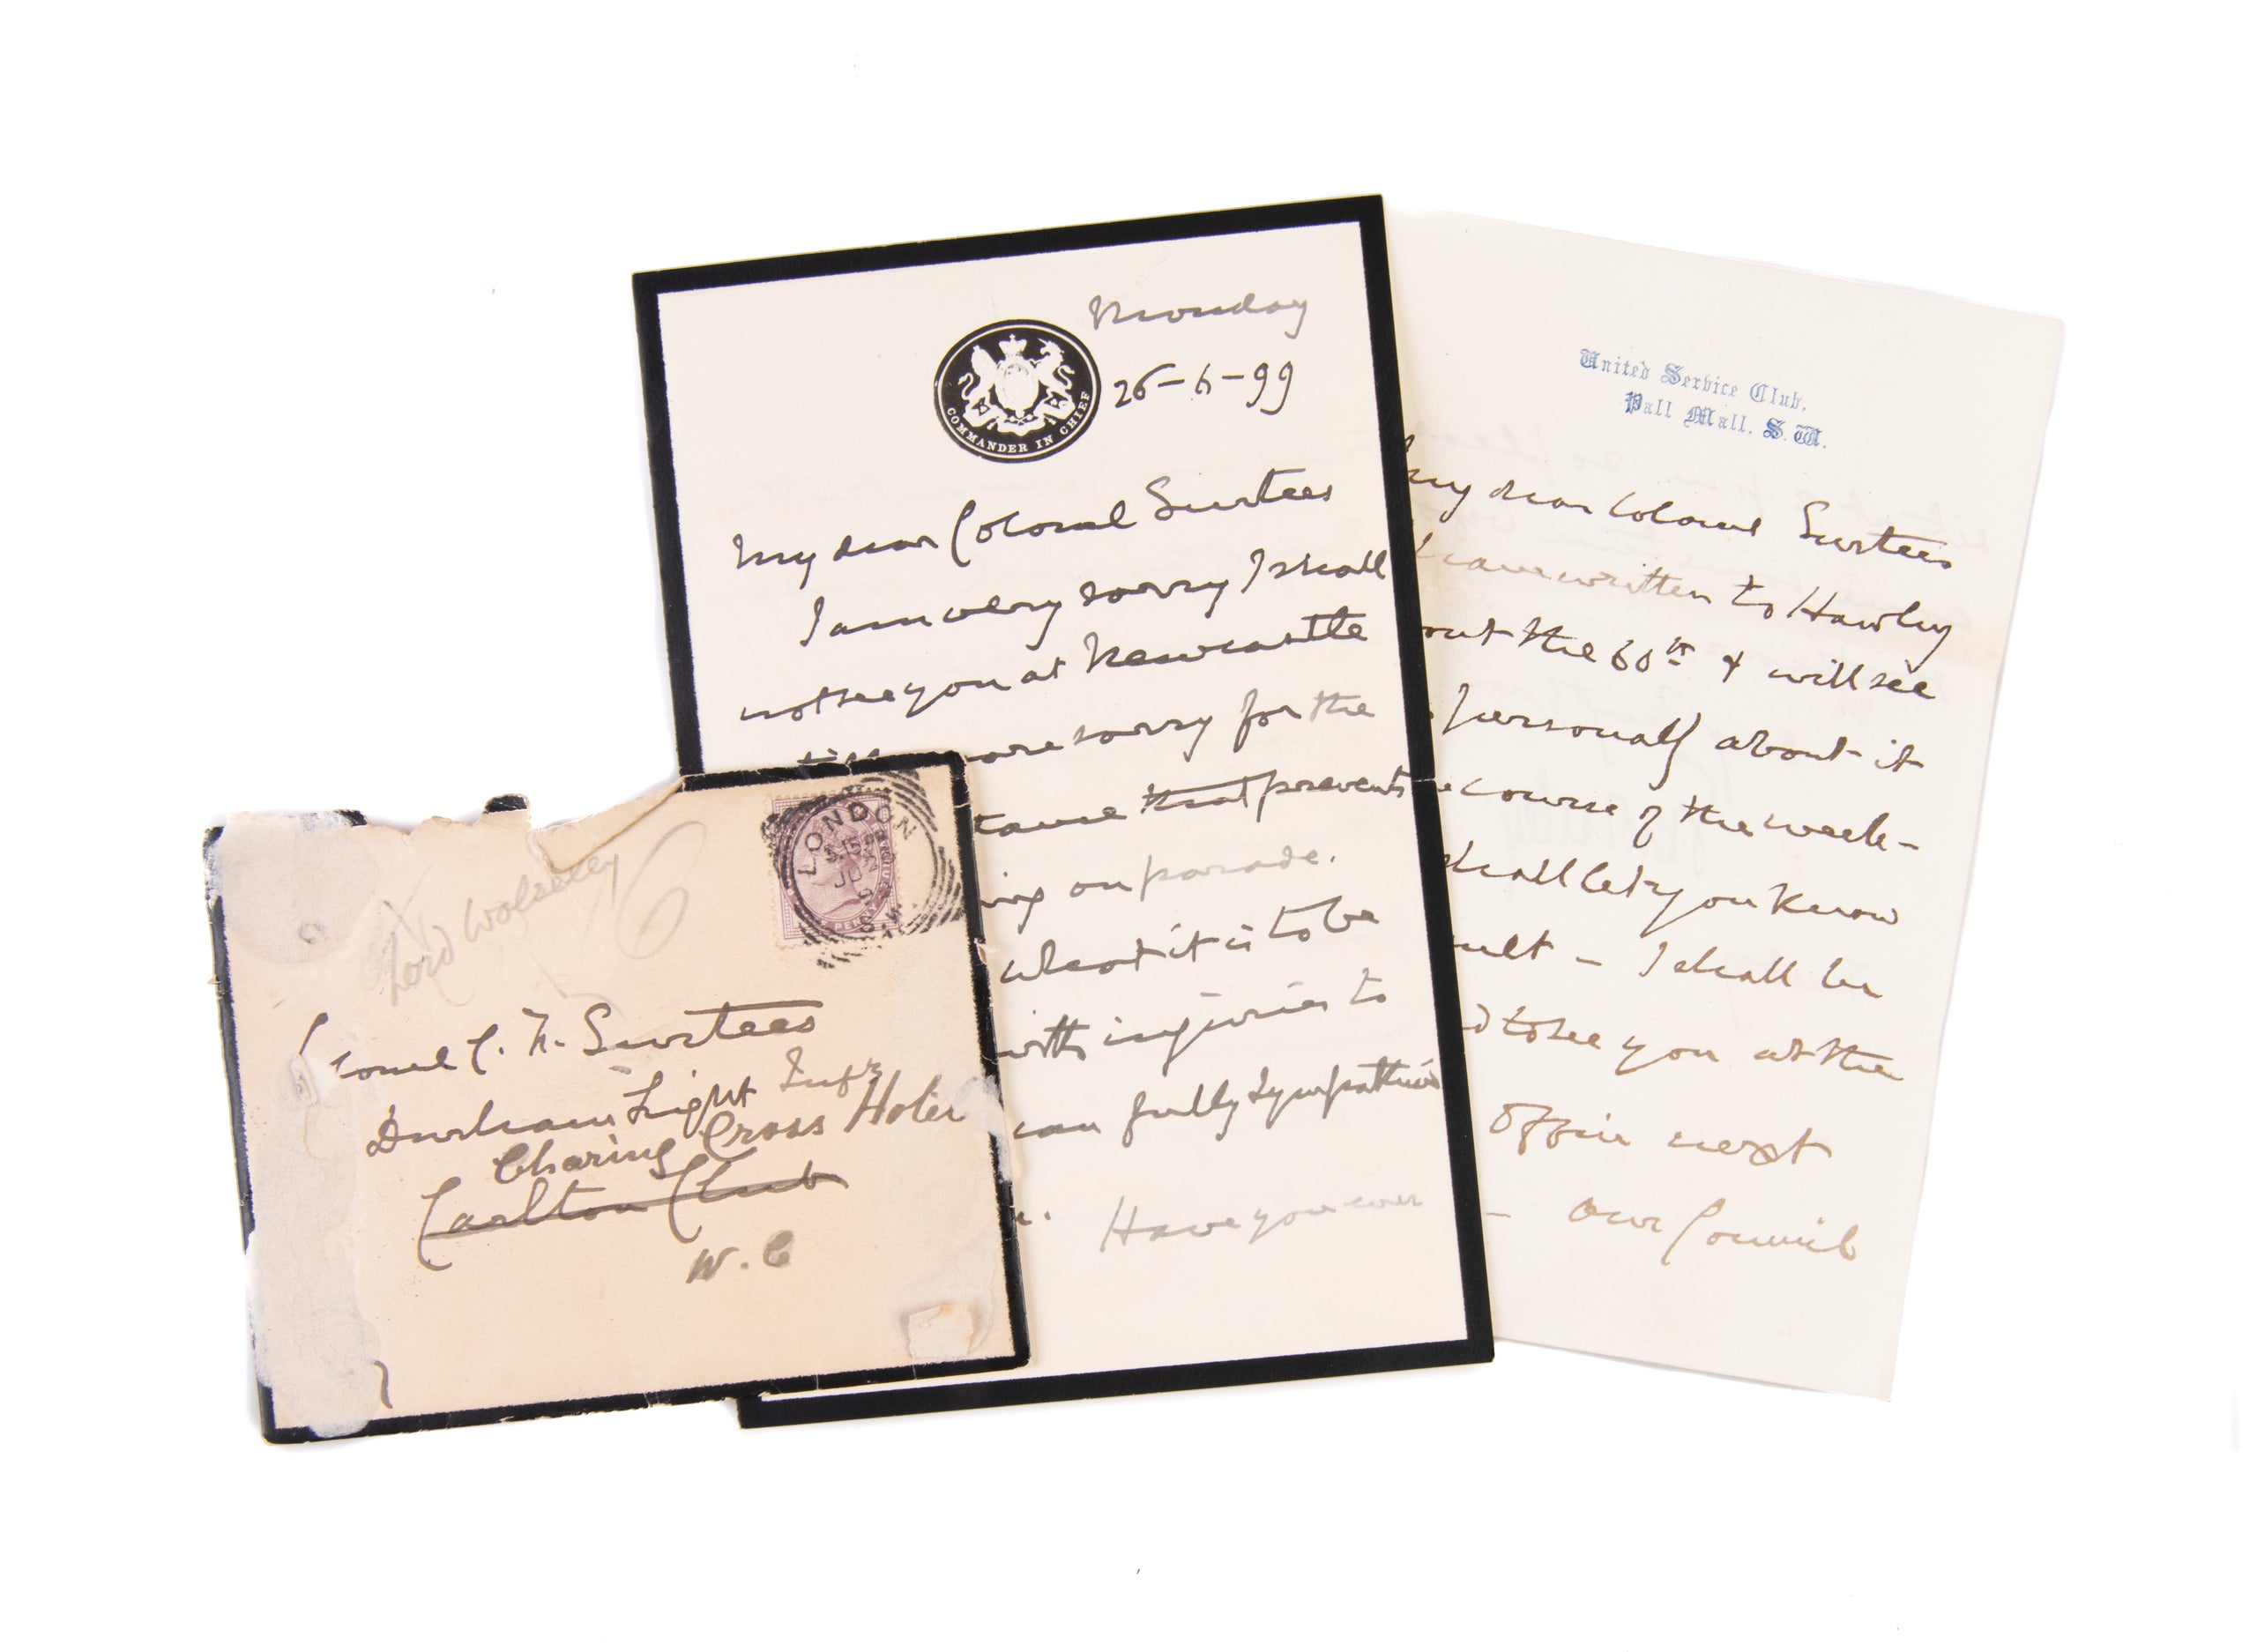 Monday
26-6-99
COMMANDER IN CHIEF
My dear Colonel Surtees
I am very sorry I shall
not see you at Newcastle
more sorry for the
that prevents
on parade.
what it is to be
with injuries to
can fully sympathise
Have you ever
United Service Club,
Pall Mall. S.W.
My dear Colonel Surtees
I have written to Hawley
out the 60th & will see
personally about it
course of the week-
shall let you know
ult - I shall be
to see you at the
Office next
- Our Council
Lord Wolseley
6
LONDON
S.W.
PENNY
C. F. Surtees
Durham Light Infy
Charing Cross Hotel
Carlton Club
W.C